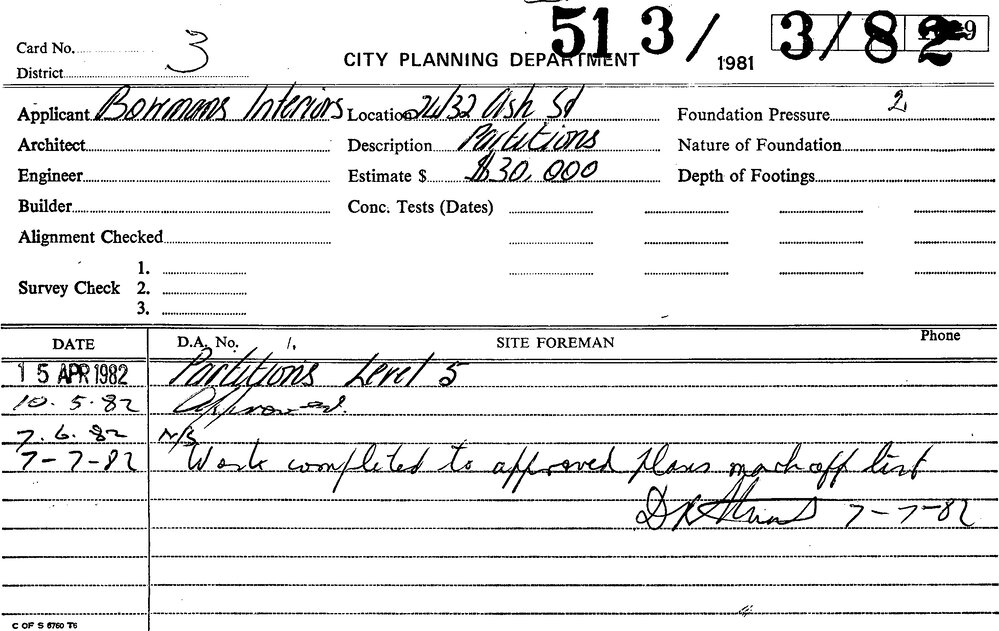 513/ 3/82
Card No. 3
CITY PLANNING DEPARTMENT 1981
District
Applicant Bowmans Interiors Location 24/32 Ash St Foundation Pressure 2
Architect Description Partitions Nature of Foundation
Engineer Estimate $ $30,000 Depth of Footings
Builder Conc. Tests (Dates)
Alignment Checked
1.
Survey Check 2.
3.
DATE D.A. No. /, SITE FOREMAN Phone
15 APR 1982 Partitions Level 5
10.5.82 Approved.
7.6.82 N/S
7-7-82 Work completed to approved plans mark off list
7-7-82
C OF S 6760 T6